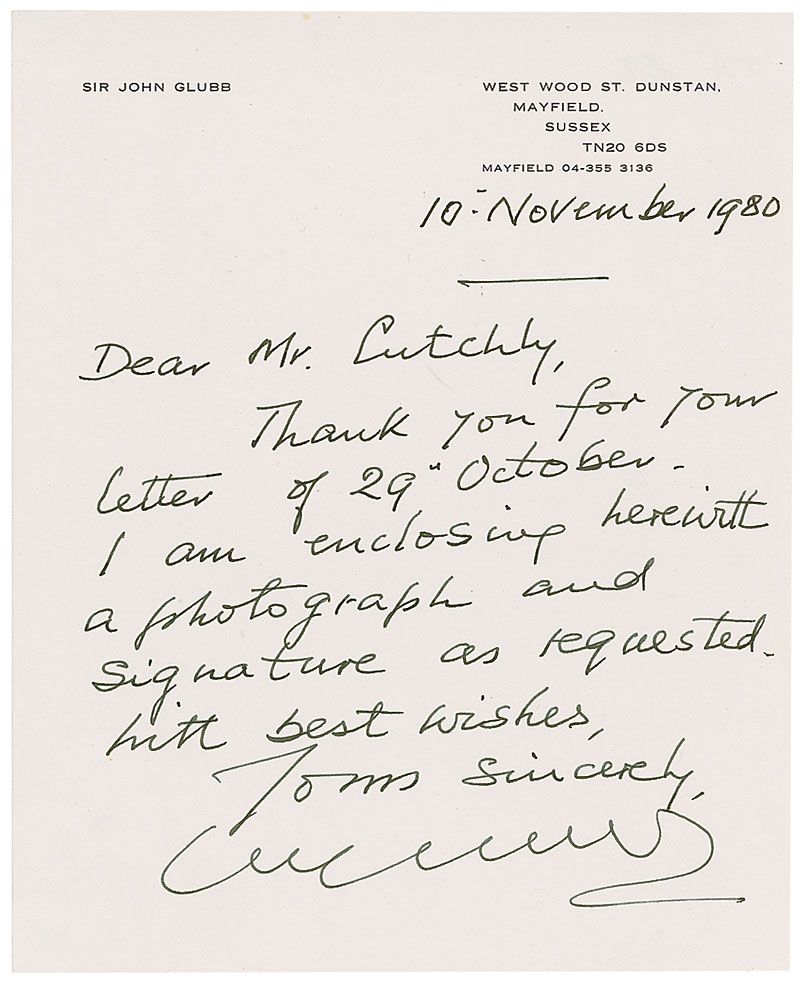 SIR JOHN GLUBB
WEST WOOD ST. DUNSTAN,
MAYFIELD.
SUSSEX
TN20 6DS
MAYFIELD 04-355 3136
10 November 1980
Dear Mr.
Thank you for your
letter of 29" October.
I am enclosing herewith
a photograph and
signature as requested.
With best wishes,
Yours sincerely,